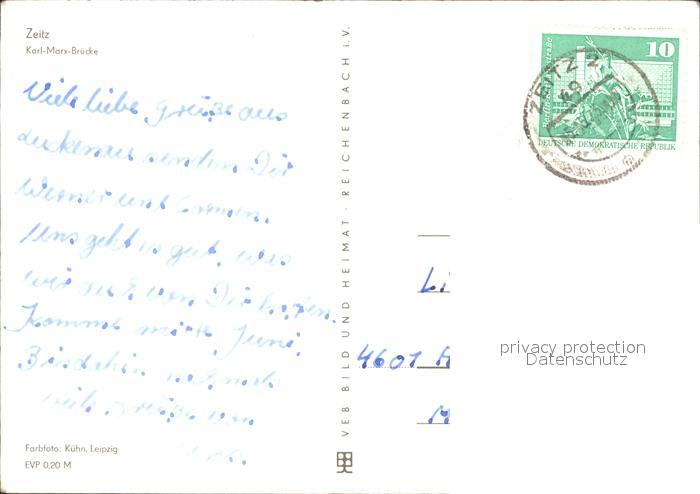 Zeitz
Karl-Marx-Brücke
Viele liebe Grüße aus
senden Dir
Werner und
Uns geht es gut, was
wir auch von Dir hoffen.
Kommt Mitte Juni.
Bis dahin nochmals
viele Grüße von
Farbfoto: Kühn, Leipzig
EVP 0,20 M
VEB BILD UND HEIMAT · REICHENBACH i. V.
10
DEUTSCHE DEMOKRATISCHE REPUBLIK
ZEITZ 2
49
Li
4601
privacy protection
Datenschutz